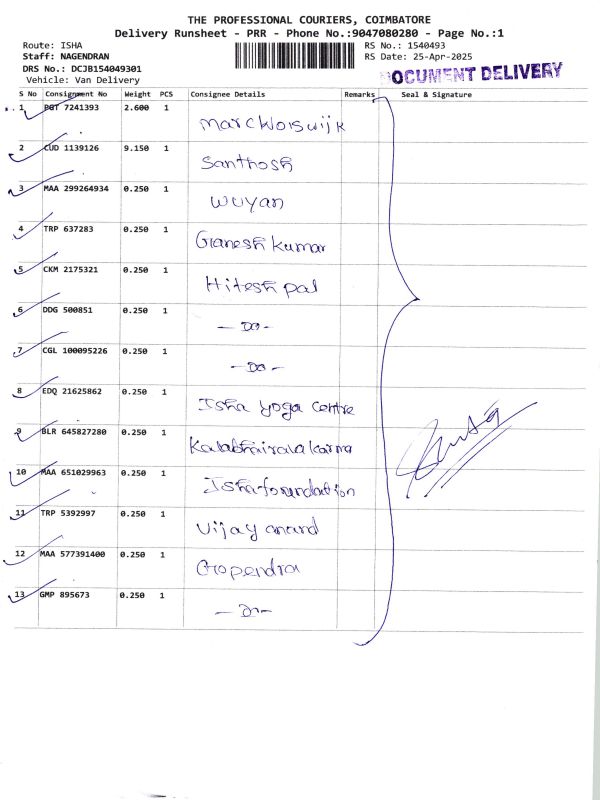 THE PROFESSIONAL COURIERS, COIMBATORE
Delivery Runsheet - PRR - Phone No.:9047080280 - Page No.:1
Route: ISHA
RS No.: 1540493
Staff: NAGENDRAN
RS Date: 25-Apr-2025
DRS No.: DCJB154049301
Vehicle: Van Delivery
DOCUMENT DELIVERY
S No Consignment No Weight PCS Consignee Details Remarks Seal & Signature
1 PGT 7241393 2.600 1
2 CUD 1139126 9.150 1 Santhosh
3 MAA 299264934 0.250 1 Wuyan
4 TRP 637283 0.250 1 Ganesh kumar
5 CKM 2175321 0.250 1 Hitesh pal
6 DDG 500851 0.250 1 - Do -
7 CGL 100095226 0.250 1 - Do -
8 EDQ 21625862 0.250 1 Isha yoga centre
9 BLR 645827280 0.250 1
10 MAA 651029963 0.250 1 Isha foundation
11 TRP 5392997 0.250 1 Vijay anand
12 MAA 577391400 0.250 1 Gopendra
13 GMP 895673 0.250 1 - Do -